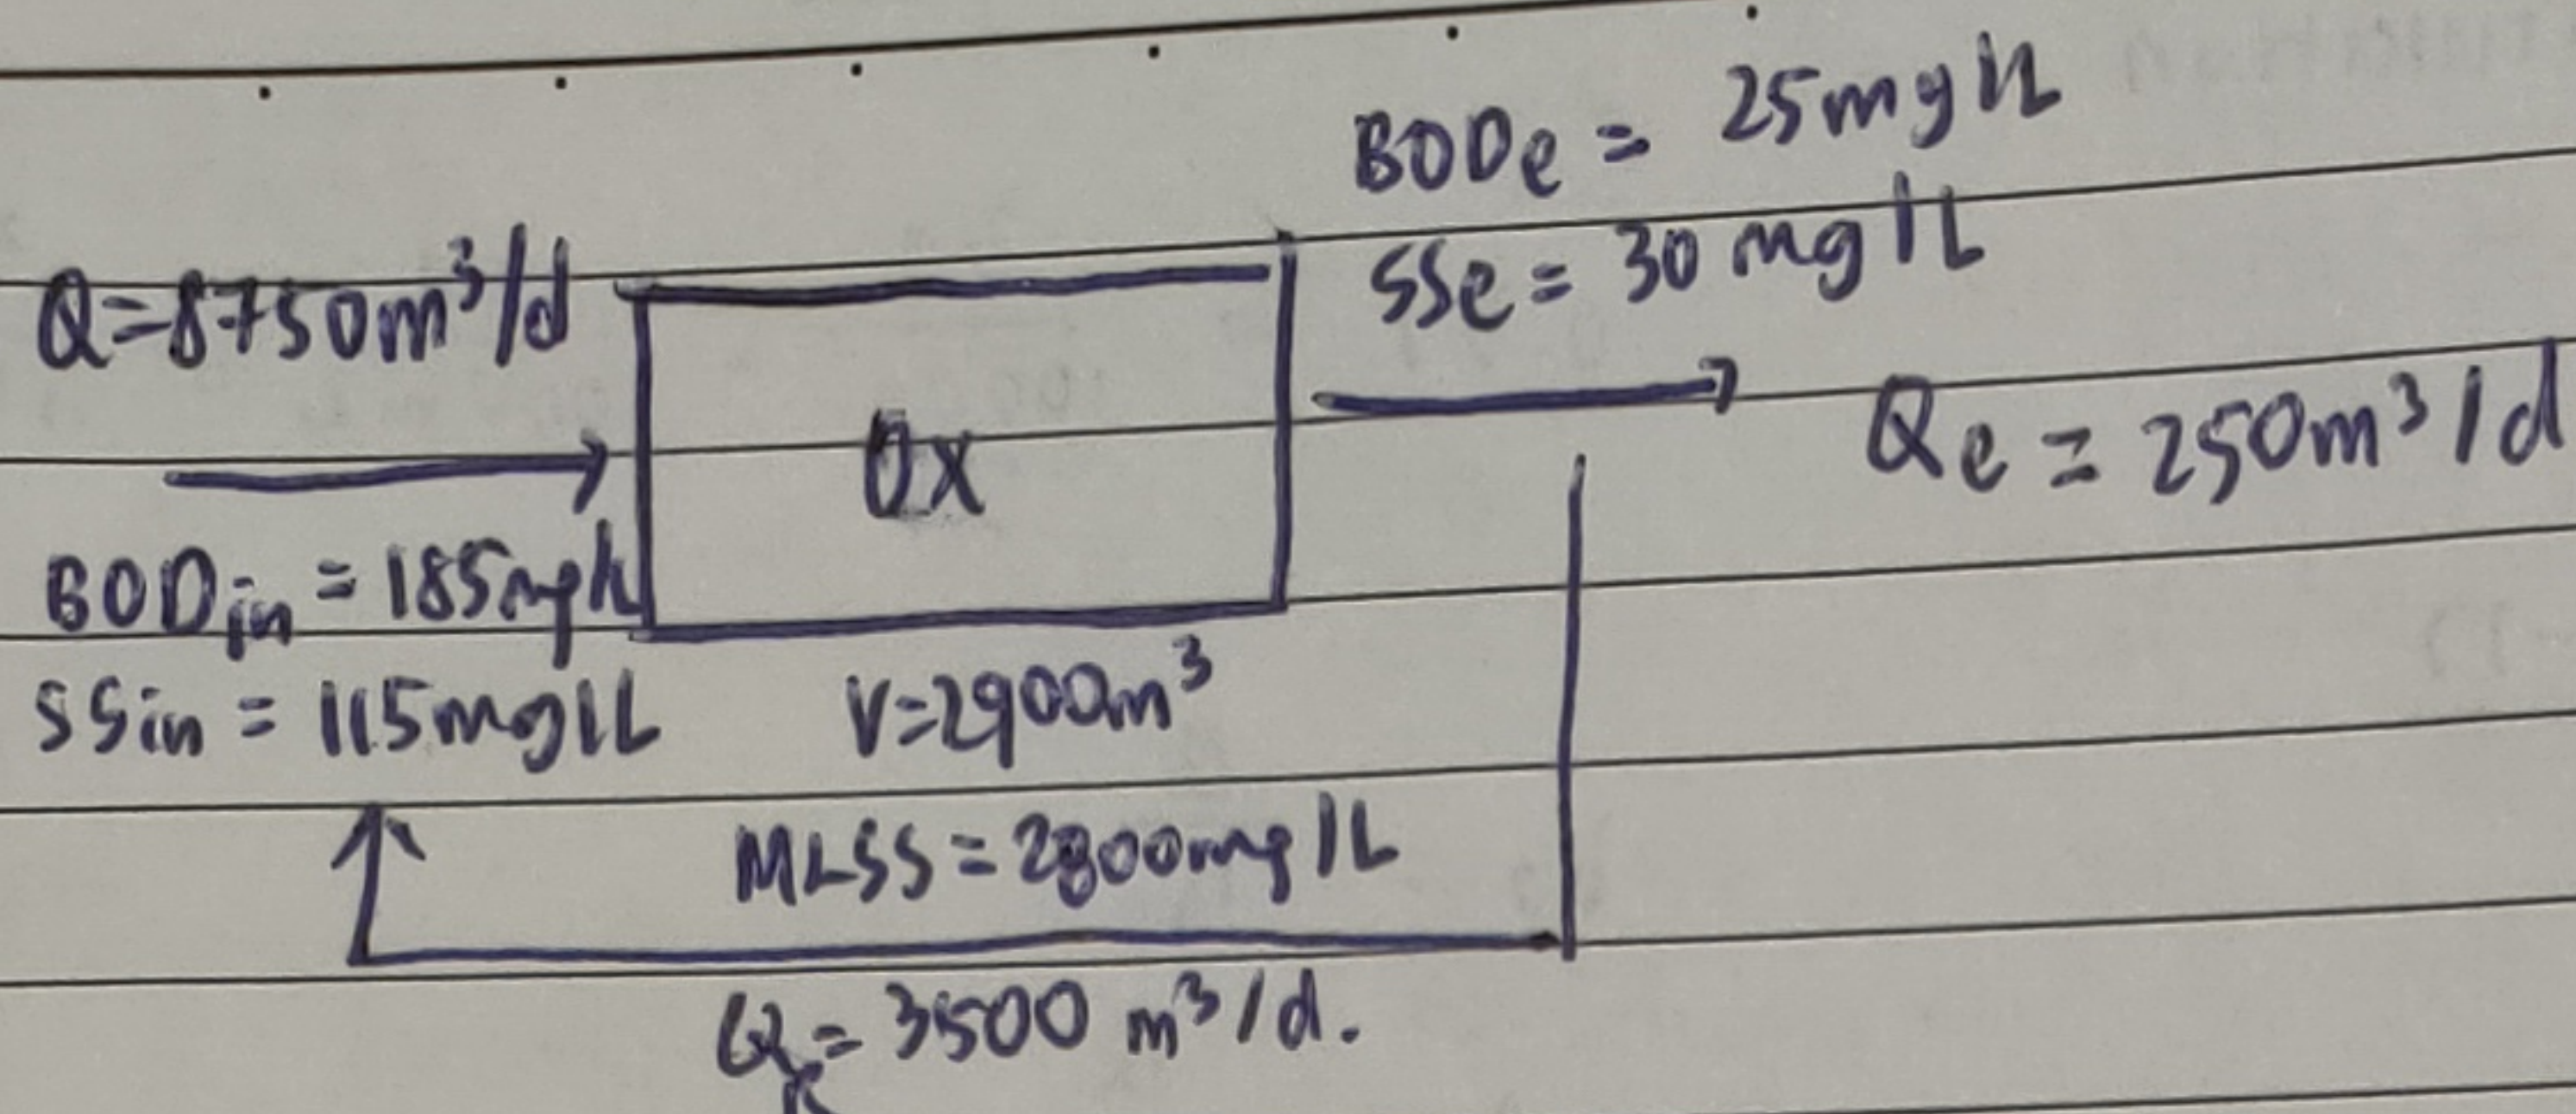 BODe = 25mg/L
SSe = 30 mg/L
Q=8750m³/d
Qe = 250m³/d
0x
BODin = 185mg/L
SSin = 115mg/L
V=2900m³
MLSS = 2800mg/L
QR = 3500 m³/d.